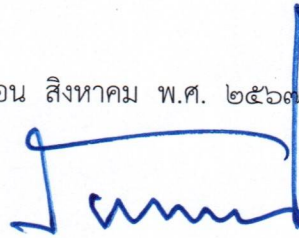 อน สิงหาคม พ.ศ. ๒๕๖๗